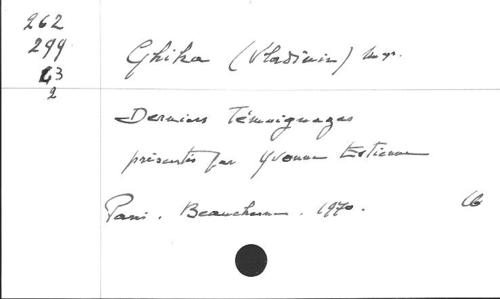 262
299
43
2
Ghika (Vladimir) Mgr.
Derniers Témoignages
présentés par Yvonne Estienne
Paris. Beauchesne. 1970.
16